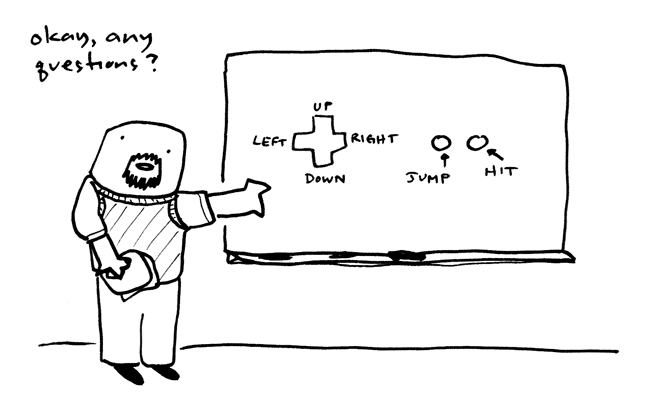 okay, any
questions?
UP
LEFT RIGHT
DOWN
JUMP
HIT